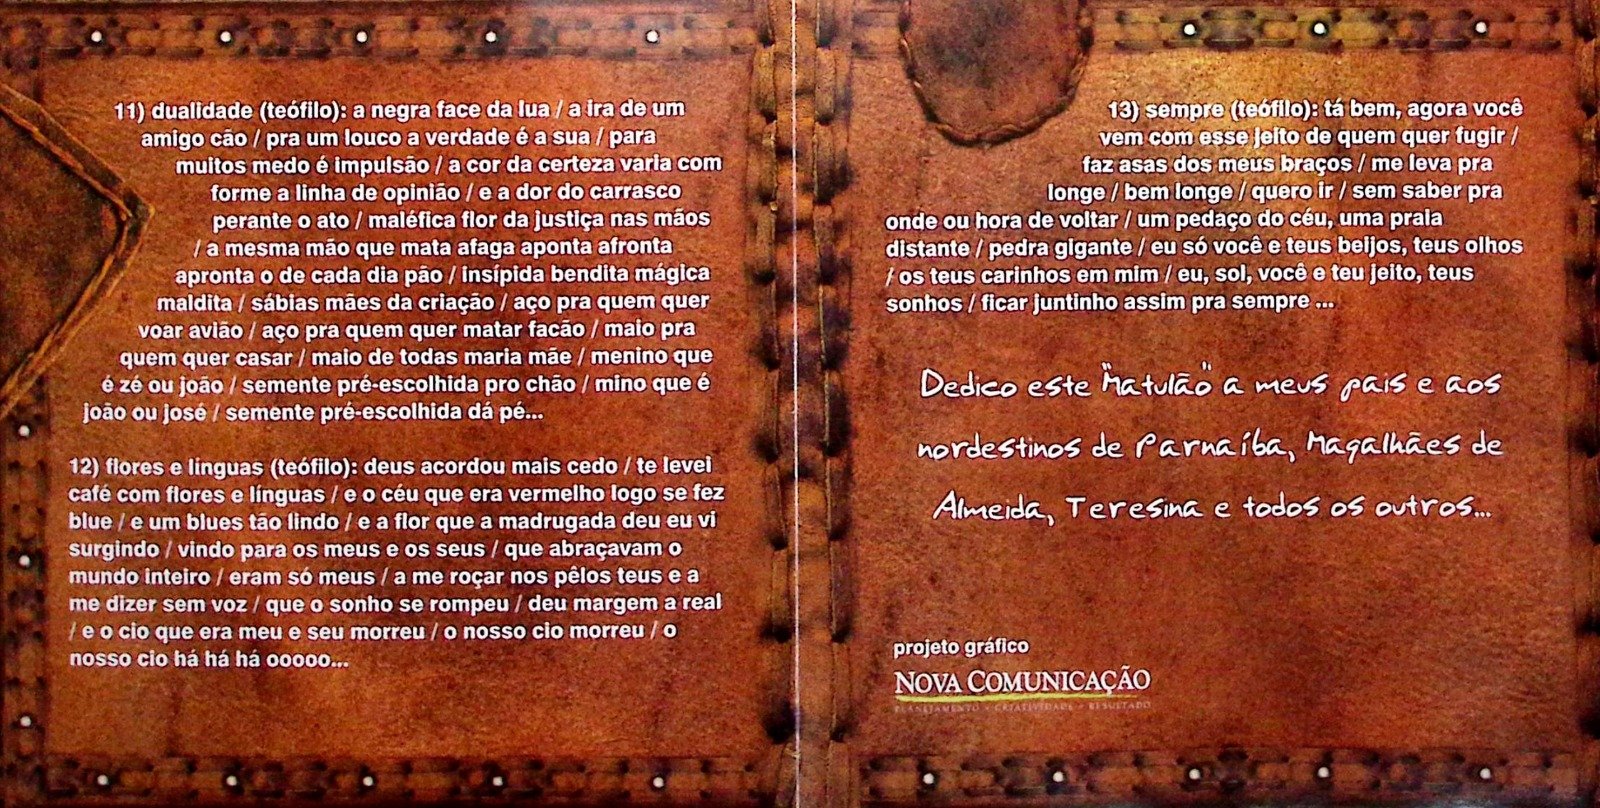 11) dualidade (teófilo): a negra face da lua / a ira de um
amigo cão / pra um louco a verdade é a sua / para
muitos medo é impulsão / a cor da certeza varia com
forme a linha de opinião / e a dor do carrasco
perante o ato / maléfica flor da justiça nas mãos
/ a mesma mão que mata afaga aponta afronta
apronta o de cada dia pão / insípida bendita mágica
maldita / sábias mães da criação / aço pra quem quer
voar avião / aço pra quem quer matar facão / maio pra
quem quer casar / maio de todas maria mãe / menino que
é zé ou joão / semente pré-escolhida pro chão / mino que é
joão ou josé / semente pré-escolhida dá pé...
12) flores e línguas (teófilo): deus acordou mais cedo / te levei
café com flores e línguas / e o céu que era vermelho logo se fez
blue / e um blues tão lindo / e a flor que a madrugada deu eu vi
surgindo / vindo para os meus e os seus / que abraçavam o
mundo inteiro / eram só meus / a me roçar nos pêlos teus e a
me dizer sem voz / que o sonho se rompeu / deu margem a real
/ e o cio que era meu e seu morreu / o nosso cio morreu / o
nosso cio há há há ooooo...
13) sempre (teófilo): tá bem, agora você
vem com esse jeito de quem quer fugir /
faz asas dos meus braços / me leva pra
longe / bem longe / quero ir / sem saber pra
onde ou hora de voltar / um pedaço do céu, uma praia
distante / pedra gigante / eu só você e teus beijos, teus olhos
/ os teus carinhos em mim / eu, sol, você e teu jeito, teus
sonhos / ficar juntinho assim pra sempre ...
Dedico este "Matulão" a meus pais e aos
nordestinos de Parnaíba, Magalhães de
Almeida, Teresina e todos os outros...
projeto gráfico
NOVA COMUNICAÇÃO
PLANEJAMENTO • CRIATIVIDADE • RESULTADO